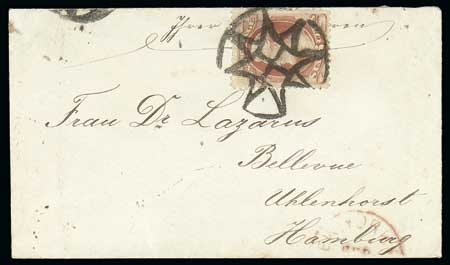 Frau Dr Lazarus
Bellevue
Uhlenhorst
Hamburg